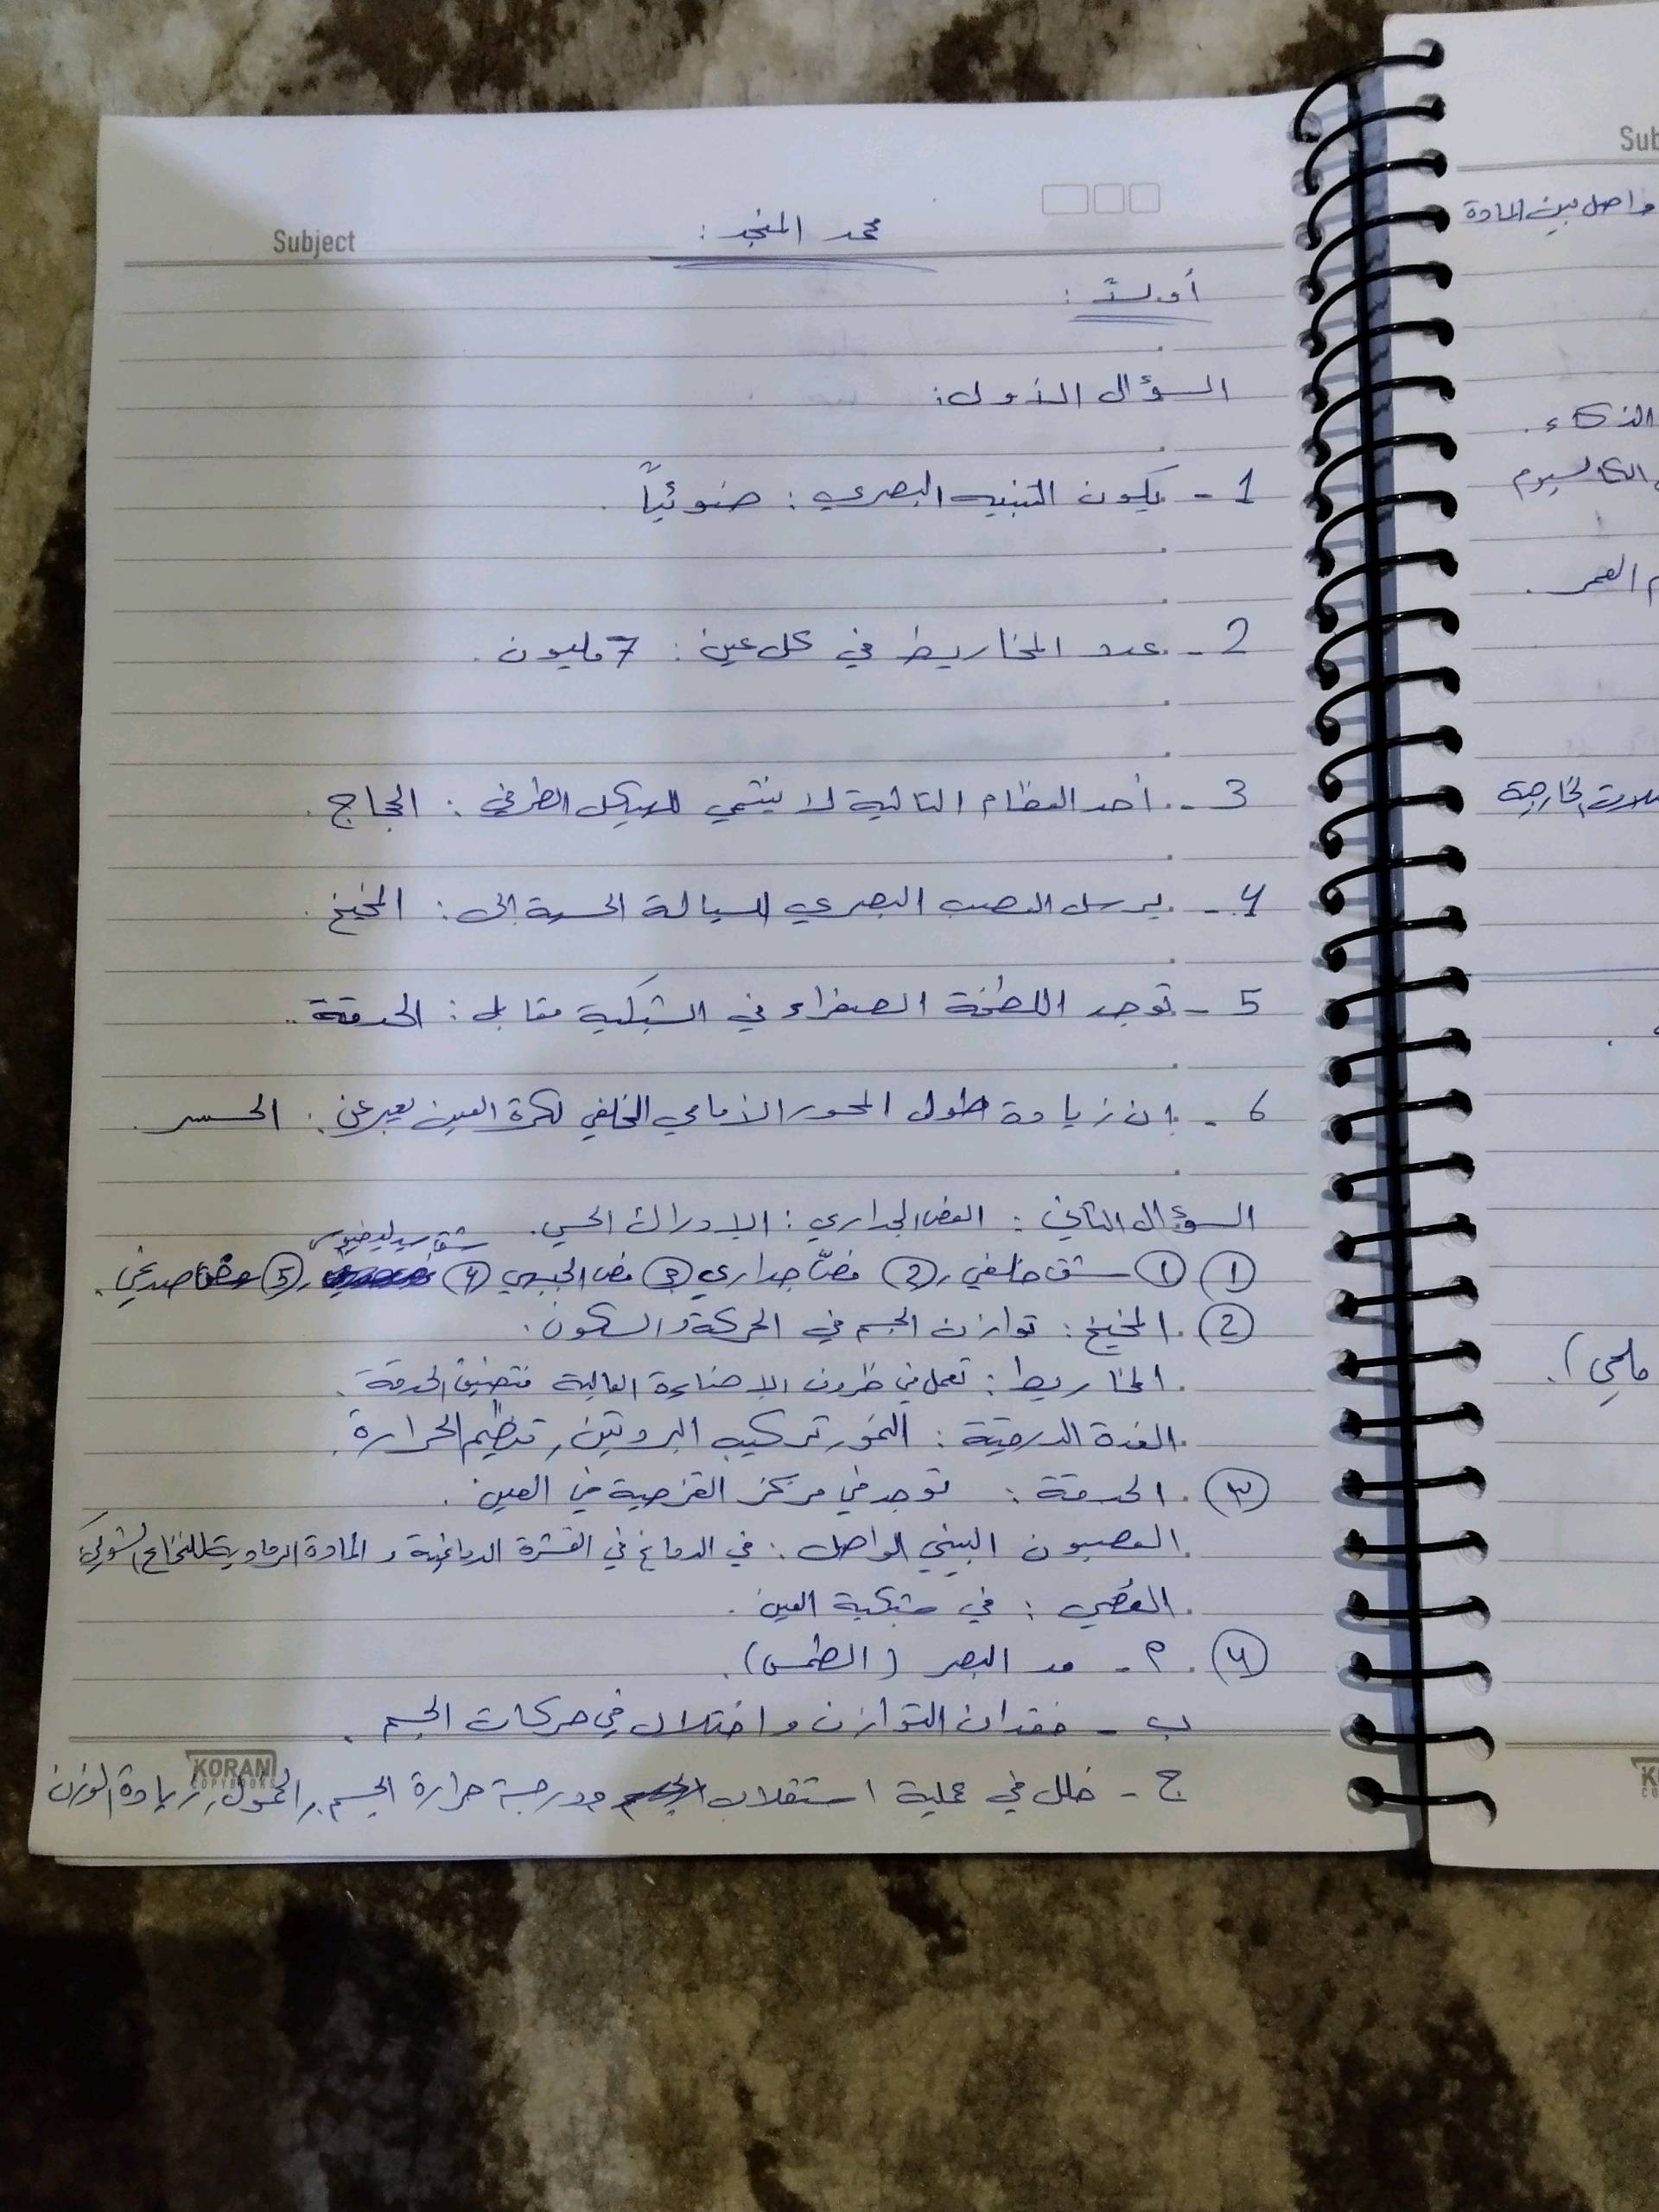 Subject
محمد المنجد :
أولاً :
السؤال الأول:
1 - يكون التنبيه البصري : ضوئياً .
2 - عدد المخاريط في كل عين : 7 مليون .
3 - أحد العظام التالية لا ينتمي للهيكل الطرفي : الحجاج .
4 - يرسل العصب البصري السيالة الحسية إلى : المخيخ .
5 - توجد اللطخة الصفراء في الشبكية مقابل : الحدقة .
6 - إن زيادة طول المحور الأمامي الخلفي لكرة العين يعبر عن : الحسر .
السؤال الثاني : الفص الجداري : الإدراك الحسي .
شق سيلفيوس
① ① شق خلفي , ② فصّ جداري ③ فص الجبهي ④ , ⑤ صدغي .
② . المخيخ : توازن الجسم في الحركة والسكون .
. المخاريط : تعمل في ظروف الإضاءة العالية فتضيق الحدقة .
. الغدة الدرقية : النمو, تركيب البروتين, تنظيم الحرارة .
③ . الحدقة : توجد في مركز القزحية في العين .
. العصبون البيني الواصل : في الدماغ في القشرة الدماغية و المادة الرمادية للنخاع الشوكي
. العُصي : في شبكية العين .
④ . P - مد البصر ( الطمس ) .
ب - فقدان التوازن واختلال في حركات الجسم .
ج - خلل في عملية استقلاب ودرجة حرارة الجسم, الخمول, زيادة الوزن
KORANI
COPYBOOKS
Sub
واصل بين المادة
الذكاء .
الكالسيوم
العمر .
الخارجية
ملحي ) .